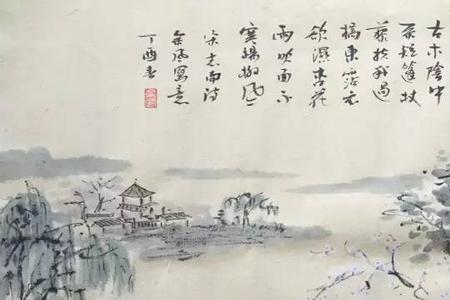 古木陰中
系短篷杖
藜扶我過
橋東霑衣
欲濕杏花
雨吹面不
寒楊柳風
宋志南詩
風寫意
丁酉春